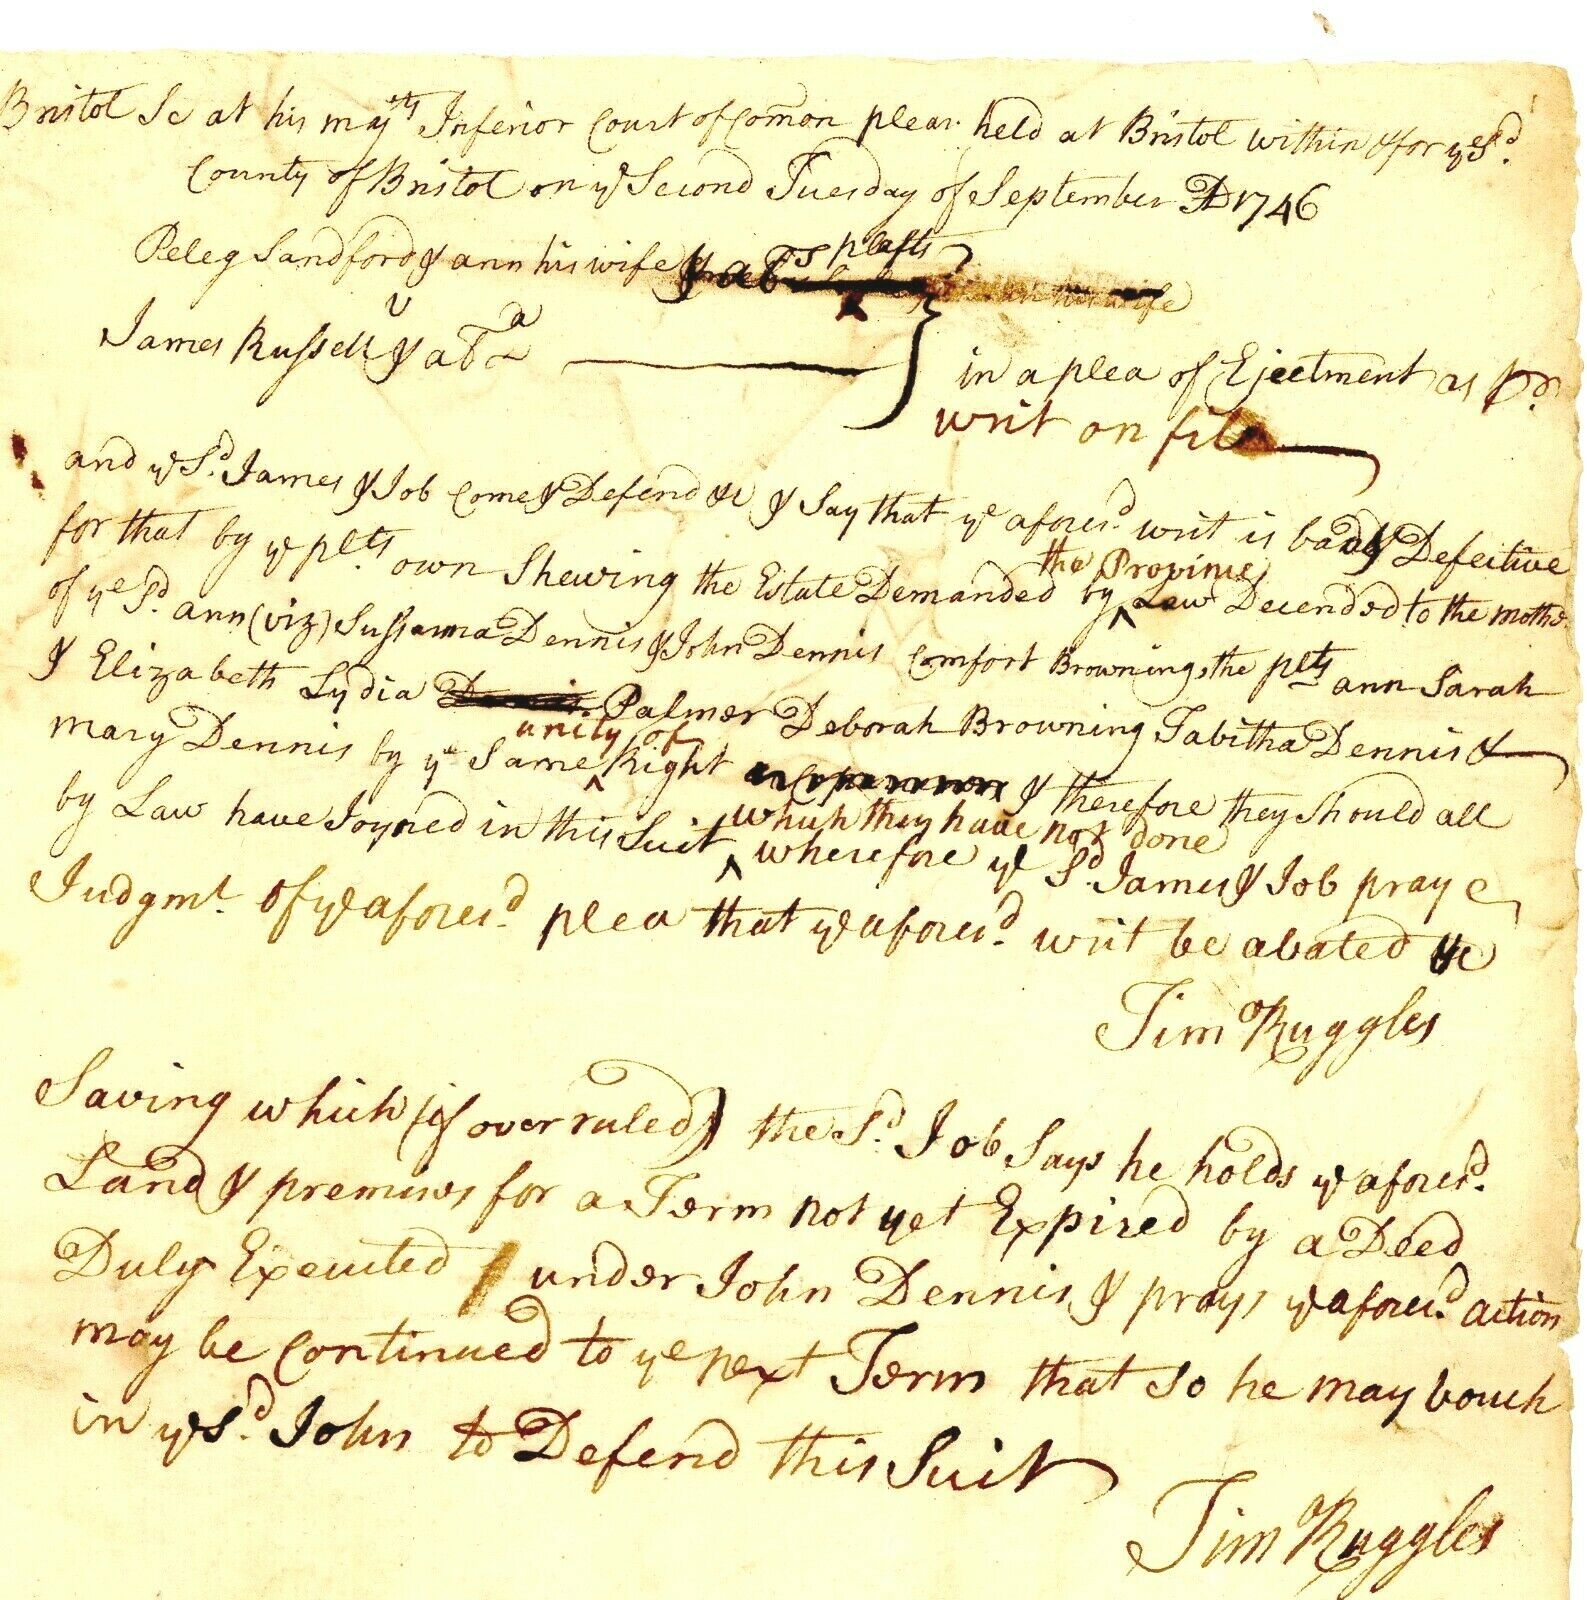 Bristol Sc at his majtys Inferior Court of Comon pleas held at Bristol within & for ye Sd.
County of Bristol on ye Second Tuesday of September AD 1746
Peleg Sandford & ann his wife plafts
v
James Russell & a
in a plea of Ejectment as pr.
writ on file
and ye Sd. James & Job Come & Defend &c & Say that ye aforesd. writ is bad & Defective
for that by ye plts own Shewing the Estate Demanded by the Province Law Decended to the mother
of ye Sd. ann (viz) Sussanna Dennis & John Dennis Comfort Browning, the plts ann Sarah
& Elizabeth Lydia Palmer Deborah Browning Tabitha Dennis &
mary Dennis by ye Same unity of Right & therefore they should all
by Law have Joyned in this Suit which they have not done wherefore ye Sd. James & Job pray
Judgmt. of ye aforesd. plea that ye aforesd. writ be abated &c
Tim Ruggles
Saving which (if over ruled) the Sd. Job Says he holds ye aforesd.
Land & premises for a Term not yet Expired by a Deed
Duly Executed under John Dennis & prays ye aforesd. action
may be Continued to ye next Term that so he may vouch
in ye Sd. John to Defend this Suit
Tim Ruggles